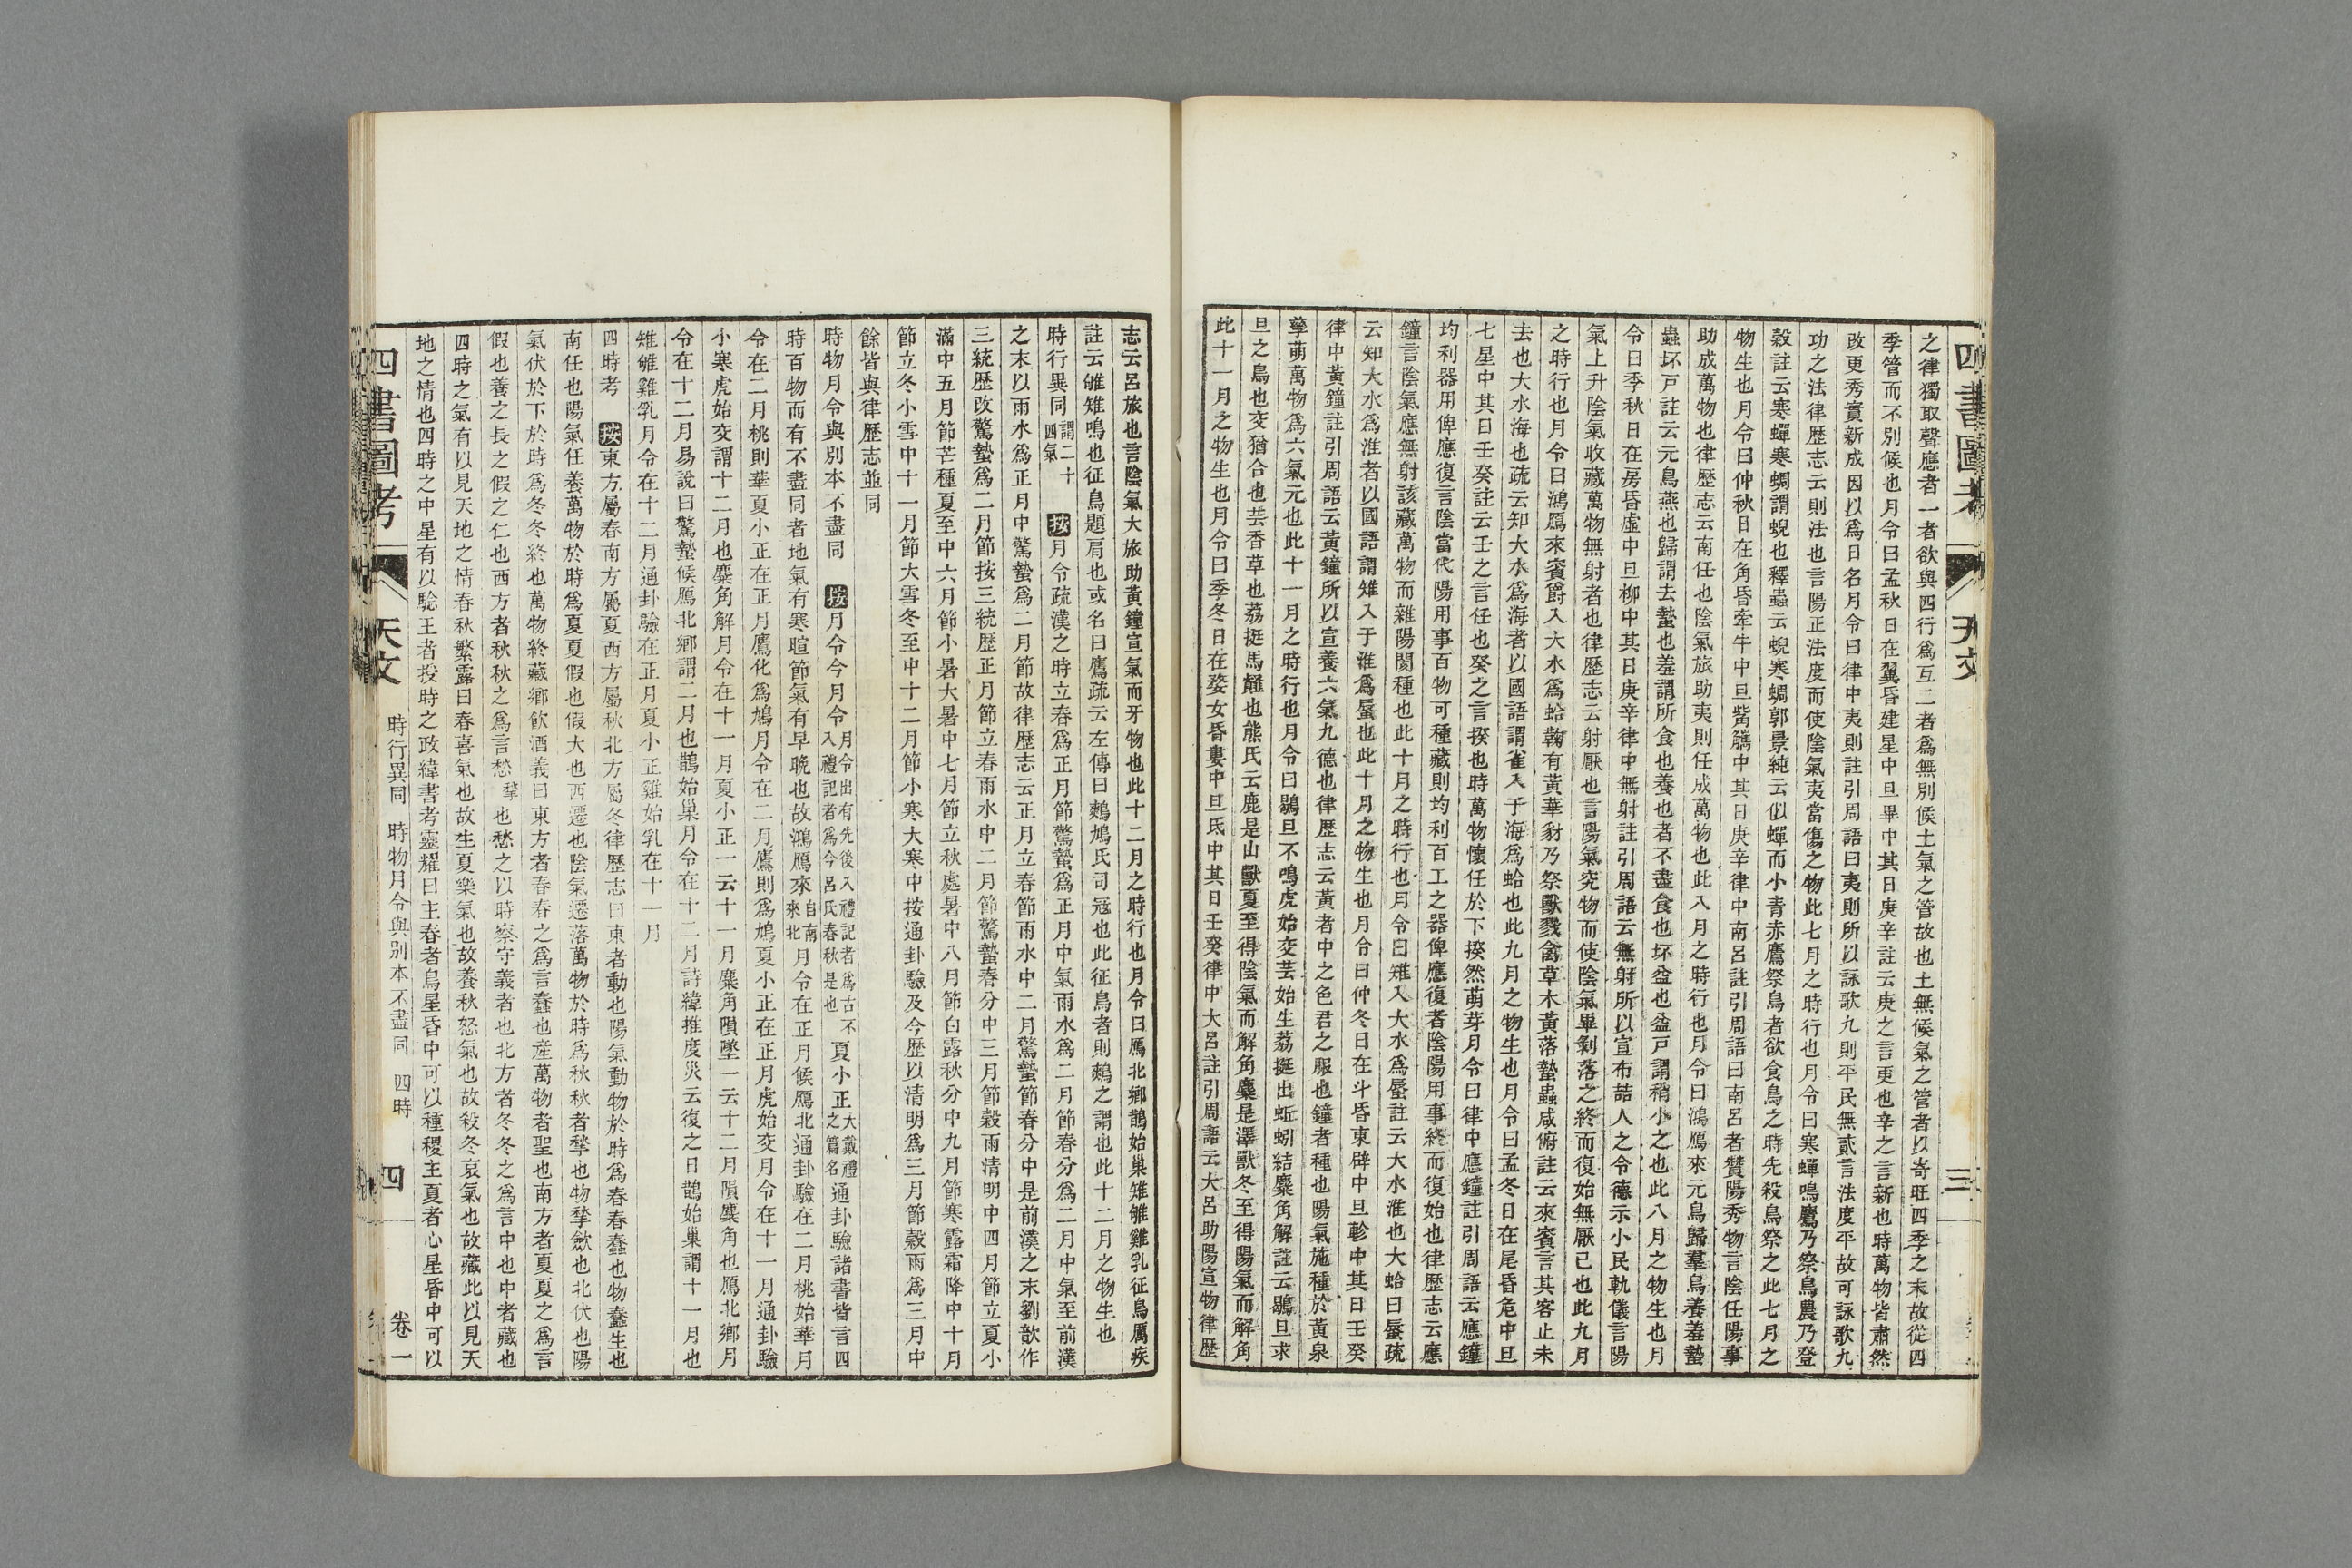 之律獨取聲應者一者欲與四行爲互二者爲無別候土氣之管故也土無候氣之管者以寄旺四季之末故從四
季管而不別候也月令曰孟秋日在翼昏建星中旦畢中其日庚辛註云庚之言更也辛之言新也時萬物皆肅然
改更秀實新成因以爲日名月令曰律中夷則註引周語曰夷則所以詠歌九則平民無貳言法度平故可詠歌九
功之法律歷志云則法也言陽正法度而使陰氣夷當傷之物此七月之時行也月令曰寒蟬鳴鷹乃祭鳥農乃登
穀註云寒蟬寒蜩謂蜺也釋蟲云蜺寒蜩郭景純云似蟬而小青赤鷹祭鳥者欲食鳥之時先殺鳥祭之此七月之
物生也月令曰仲秋日在角昏牽牛中旦觜觿中其日庚辛律中南呂註引周語曰南呂者贊陽秀物言陰任陽事
助成萬物也律歷志云南任也陰氣旅助夷則任成萬物也此八月之時行也月令曰鴻鴈來元鳥歸羣鳥養羞蟄
蟲坏戸註云元鳥燕也歸謂去蟄也羞謂所食也養也者不盡食也坏益也益戸謂稍小之也此八月之物生也月
令曰季秋日在房昏虛中旦柳中其日庚辛律中無射註引周語云無射所以宣布喆人之令德示小民軌儀言陽
氣上升陰氣收藏萬物無射者也律歷志云射厭也言陽氣究物而使陰氣畢剝落之終而復始無厭已也此九月
之時行也月令曰鴻鴈來賓爵入大水爲蛤鞠有黃華豺乃祭獸戮禽草木黃落蟄蟲咸俯註云來賓言其客止未
去也大水海也疏云知大水爲海者以國語謂雀入于海爲蛤也此九月之物生也月令曰孟冬日在尾昏危中旦
七星中其日壬癸註云壬之言任也癸之言揆也時萬物懷任於下揆然萌芽月令曰律中應鐘註引周語云應鐘
均利器用俾應復言陰當代陽用事百物可種藏則均利百工之器俾應復者陰陽用事終而復始也律歷志云應
鐘言陰氣應無射該藏萬物而雜陽閡種也此十月之時行也月令曰雉入大水爲蜃註云大水淮也大蛤曰蜃疏
云知大水爲淮者以國語謂雉入于淮爲蜃也此十月之物生也月令曰仲冬日在斗昏東辟中旦軫中其日壬癸
律中黃鐘註引周語云黃鐘所以宣養六氣九德也律歷志云黃者中之色君之服也鐘者種也陽氣施種於黃泉
孳萌萬物爲六氣元也此十一月之時行也月令曰鶡旦不鳴虎始交芸始生荔挺出蚯蚓結麋角解註云鶡旦求
旦之鳥也交猶合也芸香草也荔挺馬䪥也熊氏云鹿是山獸夏至得陰氣而解角麋是澤獸冬至得陽氣而解角
此十一月之物生也月令曰季冬日在婺女昏婁中旦氐中其日壬癸律中大呂註引周語云大呂助陽宣物律歷
四書圖考
天文
三
志云呂旅也言陰氣大旅助黃鐘宣氣而牙物也此十二月之時行也月令曰鴈北鄉鵲始巢雉雊雞乳征鳥厲疾
註云雊雉鳴也征鳥題肩也或名曰鷹疏云左傳曰鷞鳩氏司冦也此征鳥者則鷞之謂也此十二月之物生也
時行異同謂二十四氣　按月令疏漢之時立春爲正月節驚蟄爲正月中氣雨水爲二月節春分爲二月中氣至前漢
之末以雨水爲正月中驚蟄爲二月節故律歷志云正月立春節雨水中二月驚蟄節春分中是前漢之末劉歆作
三統歷改驚蟄爲二月節按三統歷正月節立春雨水中二月節驚蟄春分中三月節穀雨清明中四月節立夏小
滿中五月節芒種夏至中六月節小暑大暑中七月節立秋處暑中八月節白露秋分中九月節寒露霜降中十月
節立冬小雪中十一月節大雪冬至中十二月節小寒大寒中按通卦驗及今歷以清明爲三月節穀雨爲三月中
餘皆與律歷志並同
時物月令與別本不盡同　按月令今月令月令出有先後入禮記者爲古不入禮記者爲今呂氏春秋是也夏小正大戴禮之篇名通卦驗諸書皆言四
時百物而有不盡同者地氣有寒暄節氣有早晚也故鴻鴈來自南來北月令在正月候鴈北通卦驗在二月桃始華月
令在二月桃則華夏小正在正月鷹化爲鳩月令在二月鷹則爲鳩夏小正在正月虎始交月令在十一月通卦驗
小寒虎始交謂十二月也麋角解月令在十一月夏小正一云十一月麋角隕墜一云十二月隕麋角也鴈北鄉月
令在十二月易說曰驚蟄候鴈北鄉謂二月也鵲始巢月令在十二月詩緯推度災云復之日鵲始巢謂十一月也
雉雊雞乳月令在十二月通卦驗在正月夏小正雞始乳在十一月
四時考　按東方屬春南方屬夏西方屬秋北方屬冬律歷志曰東者動也陽氣動物於時爲春春蠢也物蠢生也
南任也陽氣任養萬物於時爲夏夏假也假大也西遷也陰氣遷落萬物於時爲秋秋者揫也物揫斂也北伏也陽
氣伏於下於時爲冬冬終也萬物終藏鄉飲酒義曰東方者春春之爲言蠢也產萬物者聖也南方者夏夏之爲言
假也養之長之假之仁也西方者秋秋之爲言愁揫也愁之以時察守義者也北方者冬冬之爲言中也中者藏也
四時之氣有以見天地之情春秋繁露曰春喜氣也故生夏樂氣也故養秋怒氣也故殺冬哀氣也故藏此以見天
地之情也四時之中星有以騐王者授時之政緯書考靈耀曰主春者鳥星昏中可以種稷主夏者心星昏中可以
四書圖考
天文
時行異同　時物月令與別本不盡同　四時
四
卷一